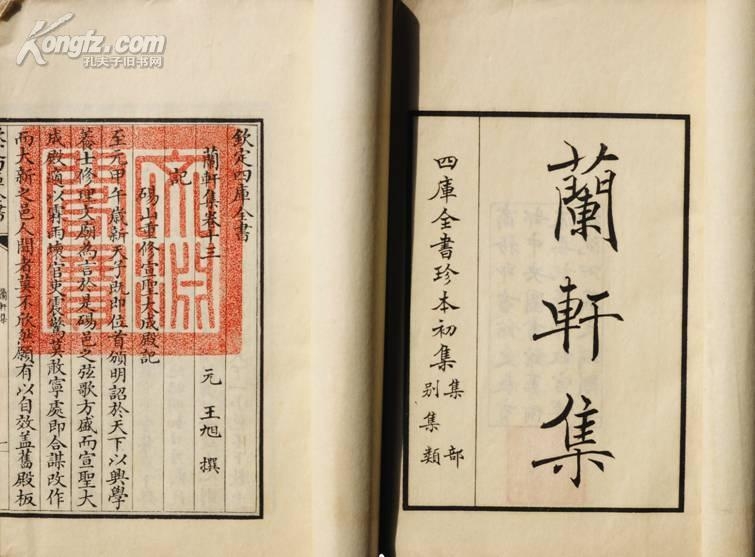 Kongfz.com
孔夫子旧书网
蘭軒集
四庫全書珍本初集
集部
別集類
欽定四庫全書
蘭軒集卷十三
元 王旭 撰
記
碭山重修宣聖大成殿記
至元甲午歲新天子既即位首頒明詔於天下以興學
養士修理文廟為言於是碭邑之弦歌方盛而宣聖大
成殿適以霖雨壞官吏震驚莫敢寧處即合謀改作
而大新之邑人聞者莫不欣然願有以自效蓋舊殿板
蘭軒集
一